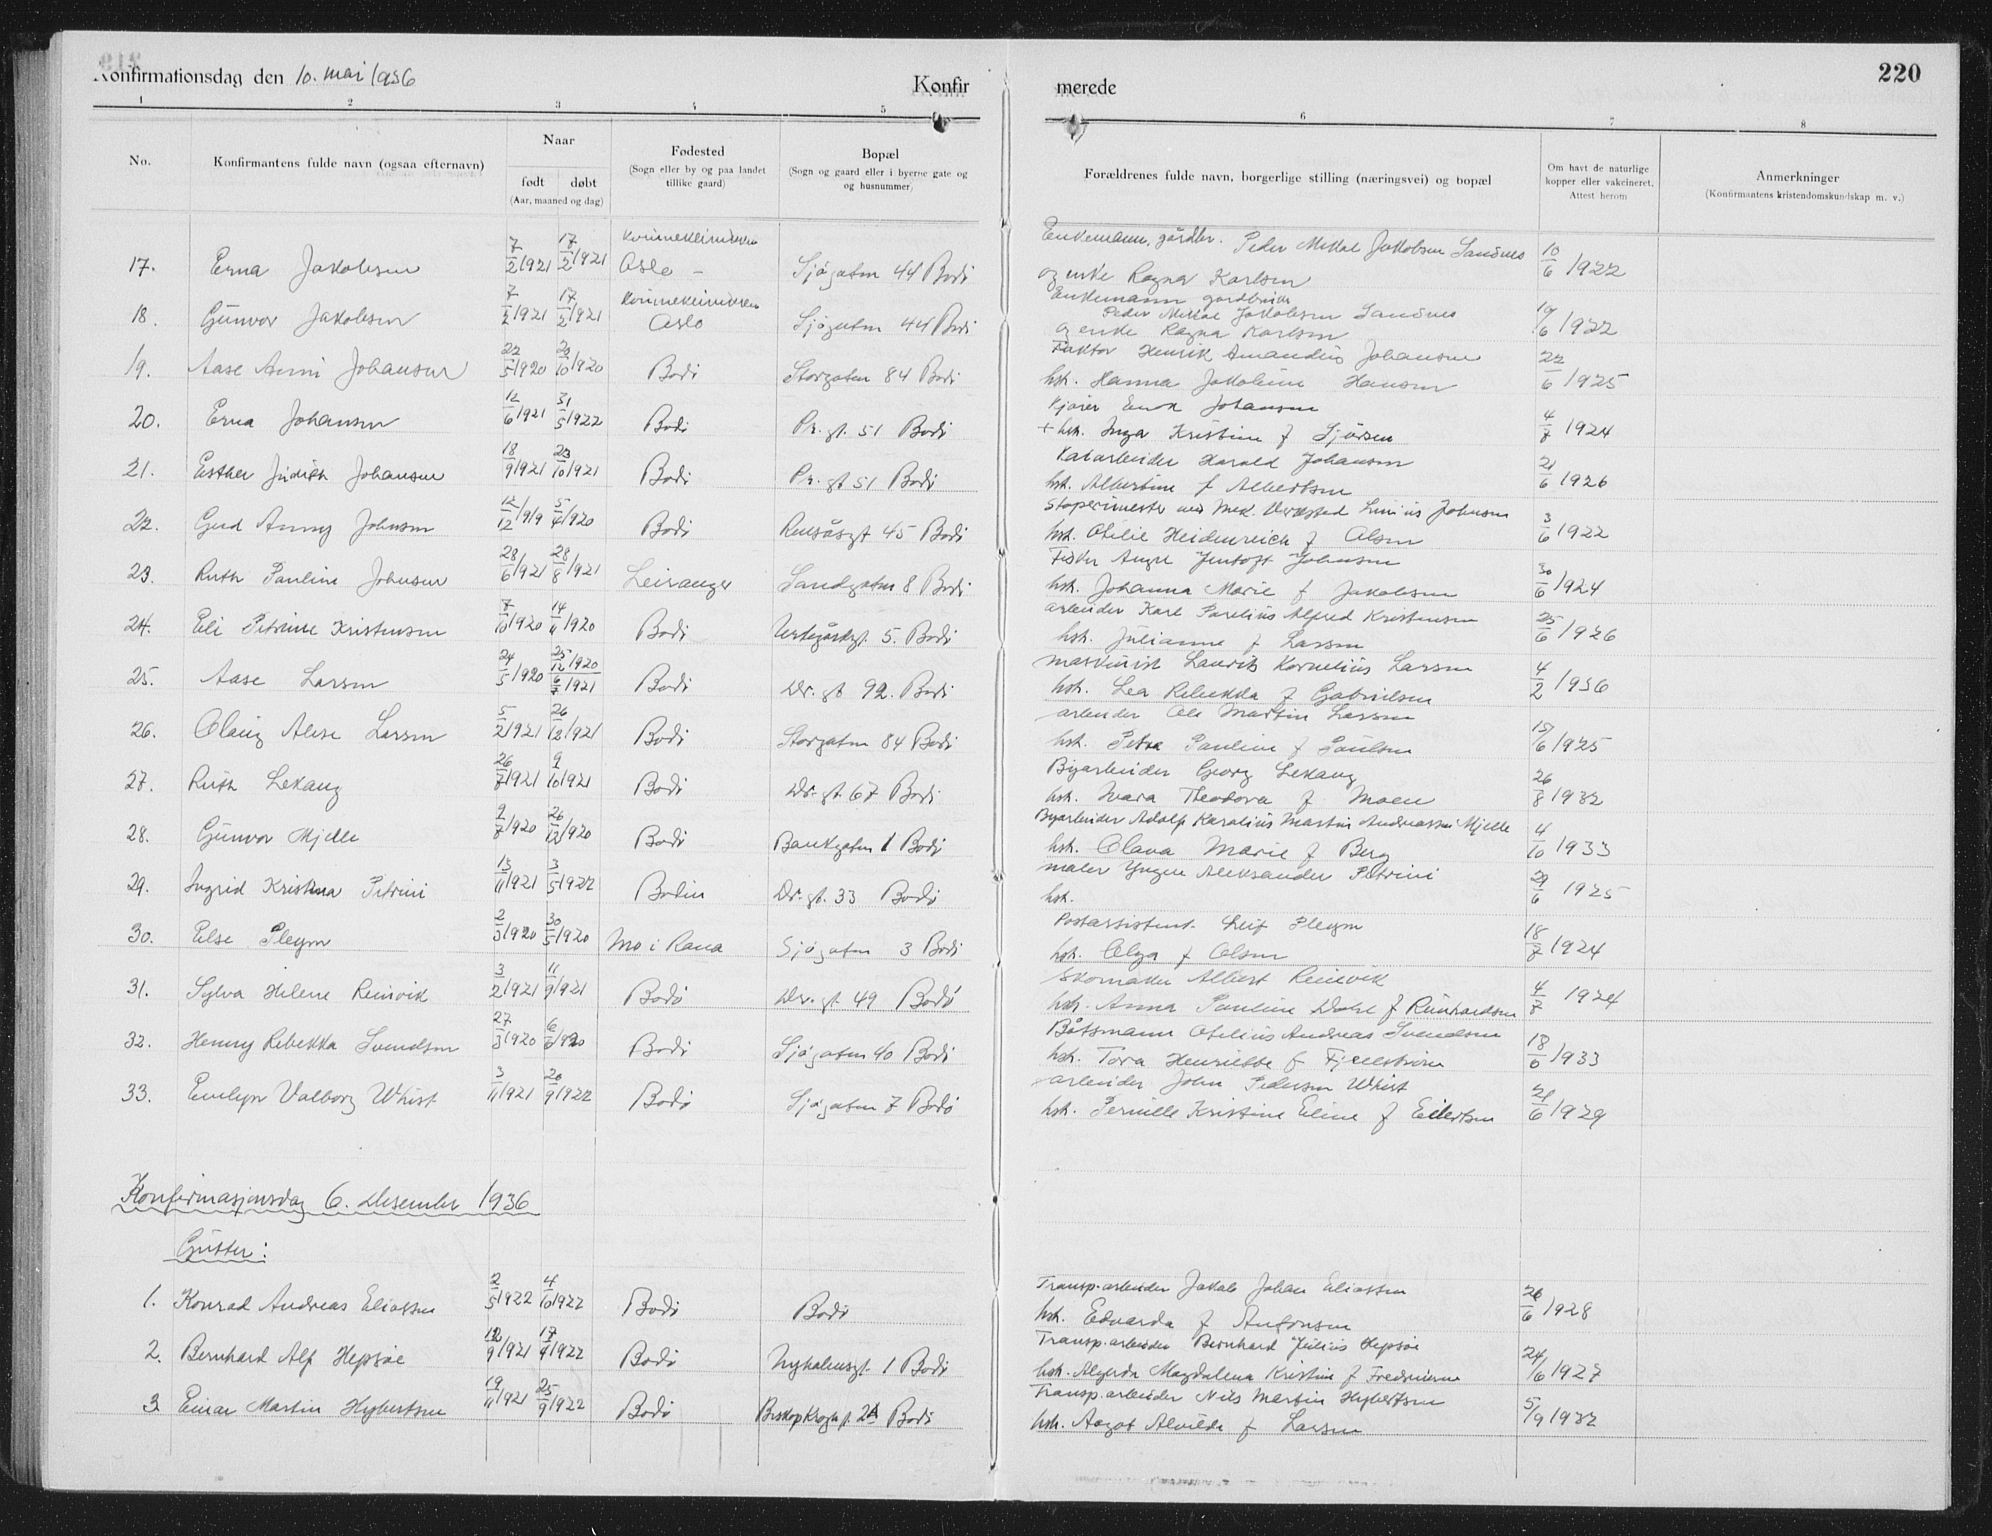 220
Konfirmationsdag den 10. mai 1936
Konfir merede
1 2 3 4 5 6 7 8
No.
Konfirmantens fulde navn (ogsaa efternavn)
Naar
født døbt
(Aar, maaned og dag)
Fødested
(Sogn eller by og paa landet
tillike gaard)
Bopæl
(Sogn og gaard eller i byerne gate og
og husnummer)
Forældrenes fulde navn, borgerlige stilling (næringsvei) og bopæl
Om havt de naturlige
kopper eller vakcineret.
Attest herom
Anmerkninger
(Konfirmantens kristendomskundskap m. v.)
Enkemann, gårdbr. Peder Mikal Jakobsen Sandnes
17. Erna Jakobsen 7/2 1921 17/2 1921 Kvinneklinikken Oslo - Sjøgaten 44 Bodø 10/6 1922
og enke Ragna Karlsen
Enkemann gårdbruker
18. Gunvor Jakobsen 7/2 1921 17/2 1921 Kvinneklinikken Oslo Sjøgaten 44 Bodø Peder Mikal Jakobsen Sandnes 19/6 1922
og enke Ragna Karlsen
Faktor Henrik Amandus Johansen
19. Aase Anni Johansen 22/5 1920 20/10 1920 Bodø Storgaten 84 Bodø hst. Hanna Jakobine Hansen 22/6 1925
Kjører Johansen
20. Erna Johansen 12/6 1921 31/5 1922 Bodø Pr. gt. 51 Bodø + hst. Inga Kristine f 4/7 1924
Harald Johansen
21. Esther Judith Johansen 18/9 1921 23/10 1921 Bodø Pr. gt 51 Bodø hst. Albertine f Albertsen 21/6 1926
Støperimester ved Mek. Verksted Linius Johnsen
22. Gud Anny Johnsen 12/12 1919 5/4 1920 Bodø Rensåsgt 45 Bodø hst. Otilie Heidenreich f Olsen 3/6 1922
Fisker Jentoft Johnsen
23. Ruth Pauline Johnsen 28/6 1921 28/8 1921 Leiranger Sandgaten 8 Bodø hst. Johanna Marie f Jakobsen 30/6 1924
arbeider Karl Parelius Alfred Kristensen
24. Eli Petrine Kristensen 7/10 1920 14/11 1920 Bodø 5. Bodø hst. Julianne f Larsen 25/6 1926
maskinist Laurits Kornelius Larsen
25. Aase Larsen 24/5 1920 25/12 1920 6/7 1921 Bodø Dr. gt 92. Bodø hst. Lea Rebekka f Gabrielsen 4/2 1936
arbeider Ole Martin Larsen
26. Olaug Alise Larsen 5/2 1921 26/12 1921 Bodø Storgaten 84 Bodø hst. Petra Pauline f Paulsen 15/6 1925
Byarbeider Georg Lekang
27. Ruth Lekang 26/7 1921 9/10 1921 Bodø Dr. gt. 67 Bodø hst. Ivara Theodora f. Moen 26/8 1932
Byarbeider Adolf Karolius Martin Andreassen Mjelle
28. Gunvor Mjelle 2/7 1920 26/12 1920 Bodø Bankgaten 1 Bodø hst. Olava Marie f Berg 4/10 1933
maler Yngve Aleksander Petrini
29. Ingrid Kristina Petrini 13/11 1921 3/5 1922 Bodin Dr. gt. 33 Bodø hst. 29/6 1925
Postassistent. Leif Pleym
30. Else Pleym 2/3 1920 30/5 1920 Mo i Rana Sjøgaten 3 Bodø hst. Olga f Olsen 18/7 1924
Skomaker Albert Reinvik
31. Sylva Helene Reinvik 3/2 1921 11/9 1921 Bodø Dr. gt. 49 Bodø hst. Anna Pauline Dahl f Reinhardsen 4/7 1924
Båtsmann Otelius Andreas Svendsen
32. Henny Rebekka Svendsen 27/3 1920 6/6 1920 Bodø Sjøgaten 40 Bodø hst. Tora Henriette f Fjellstrøm 18/6 1933
arbeider John Pedersen Whist
33. Evelyn Valborg Whist 3/11 1921 20/9 1922 Bodø Sjøgaten 7 Bodø hst. Pernille Kristine Eline f Eilertsen 21/6 1929
Konfirmasjonsdag 6. Desember 1936
Gutter:
Transp.arbeider Jakob Johan Eliassen
1. Konrad Andreas Eliassen 2/5 1922 4/10 1922 Bodø Bodø hst. Edvarda f Antonsen 26/6 1928
Transp.arbeider Bernhard Julius Hepsøe
2. Bernhard Alf Hepsøe 12/9 1921 17/9 1922 Bodø Nyholmsgt. 1 Bodø hst. Magdalena Kristine f Fredriksen 24/6 1927
Transp.arbeider Nils Martin Hybertsen
3. Einar Martin Hybertsen 19/11 1921 25/9 1922 Bodø Biskop Kroghs 2A Bodø hst. Aagot Alvilde f Larsen 5/9 1932